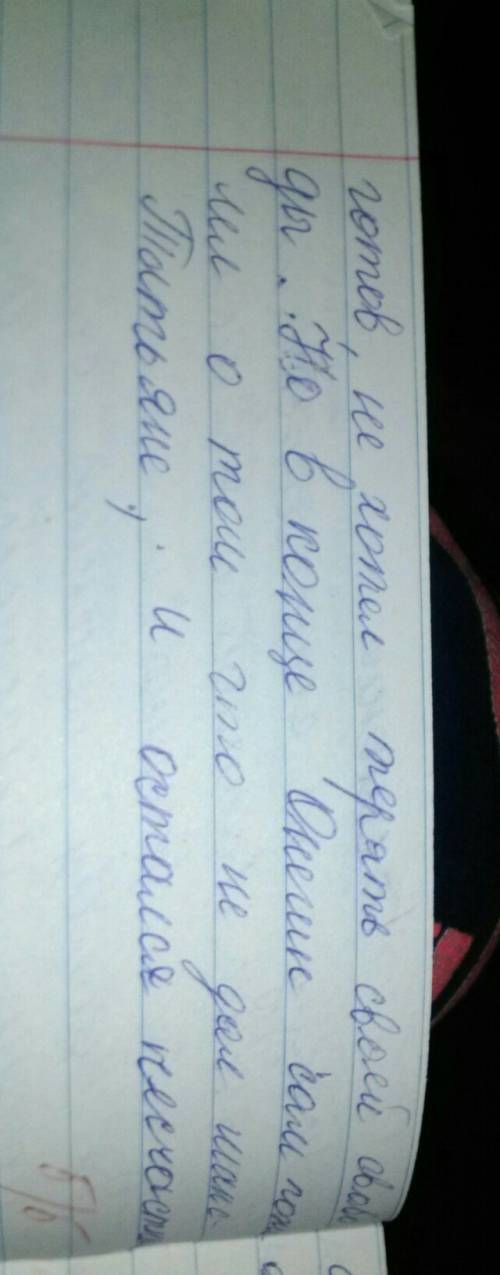 готов, не хотел терять своей свобо
ды. Но в конце Онегин сам жа
лел о том что не дал шанс
Татьяне, и остался несчаст
5/5